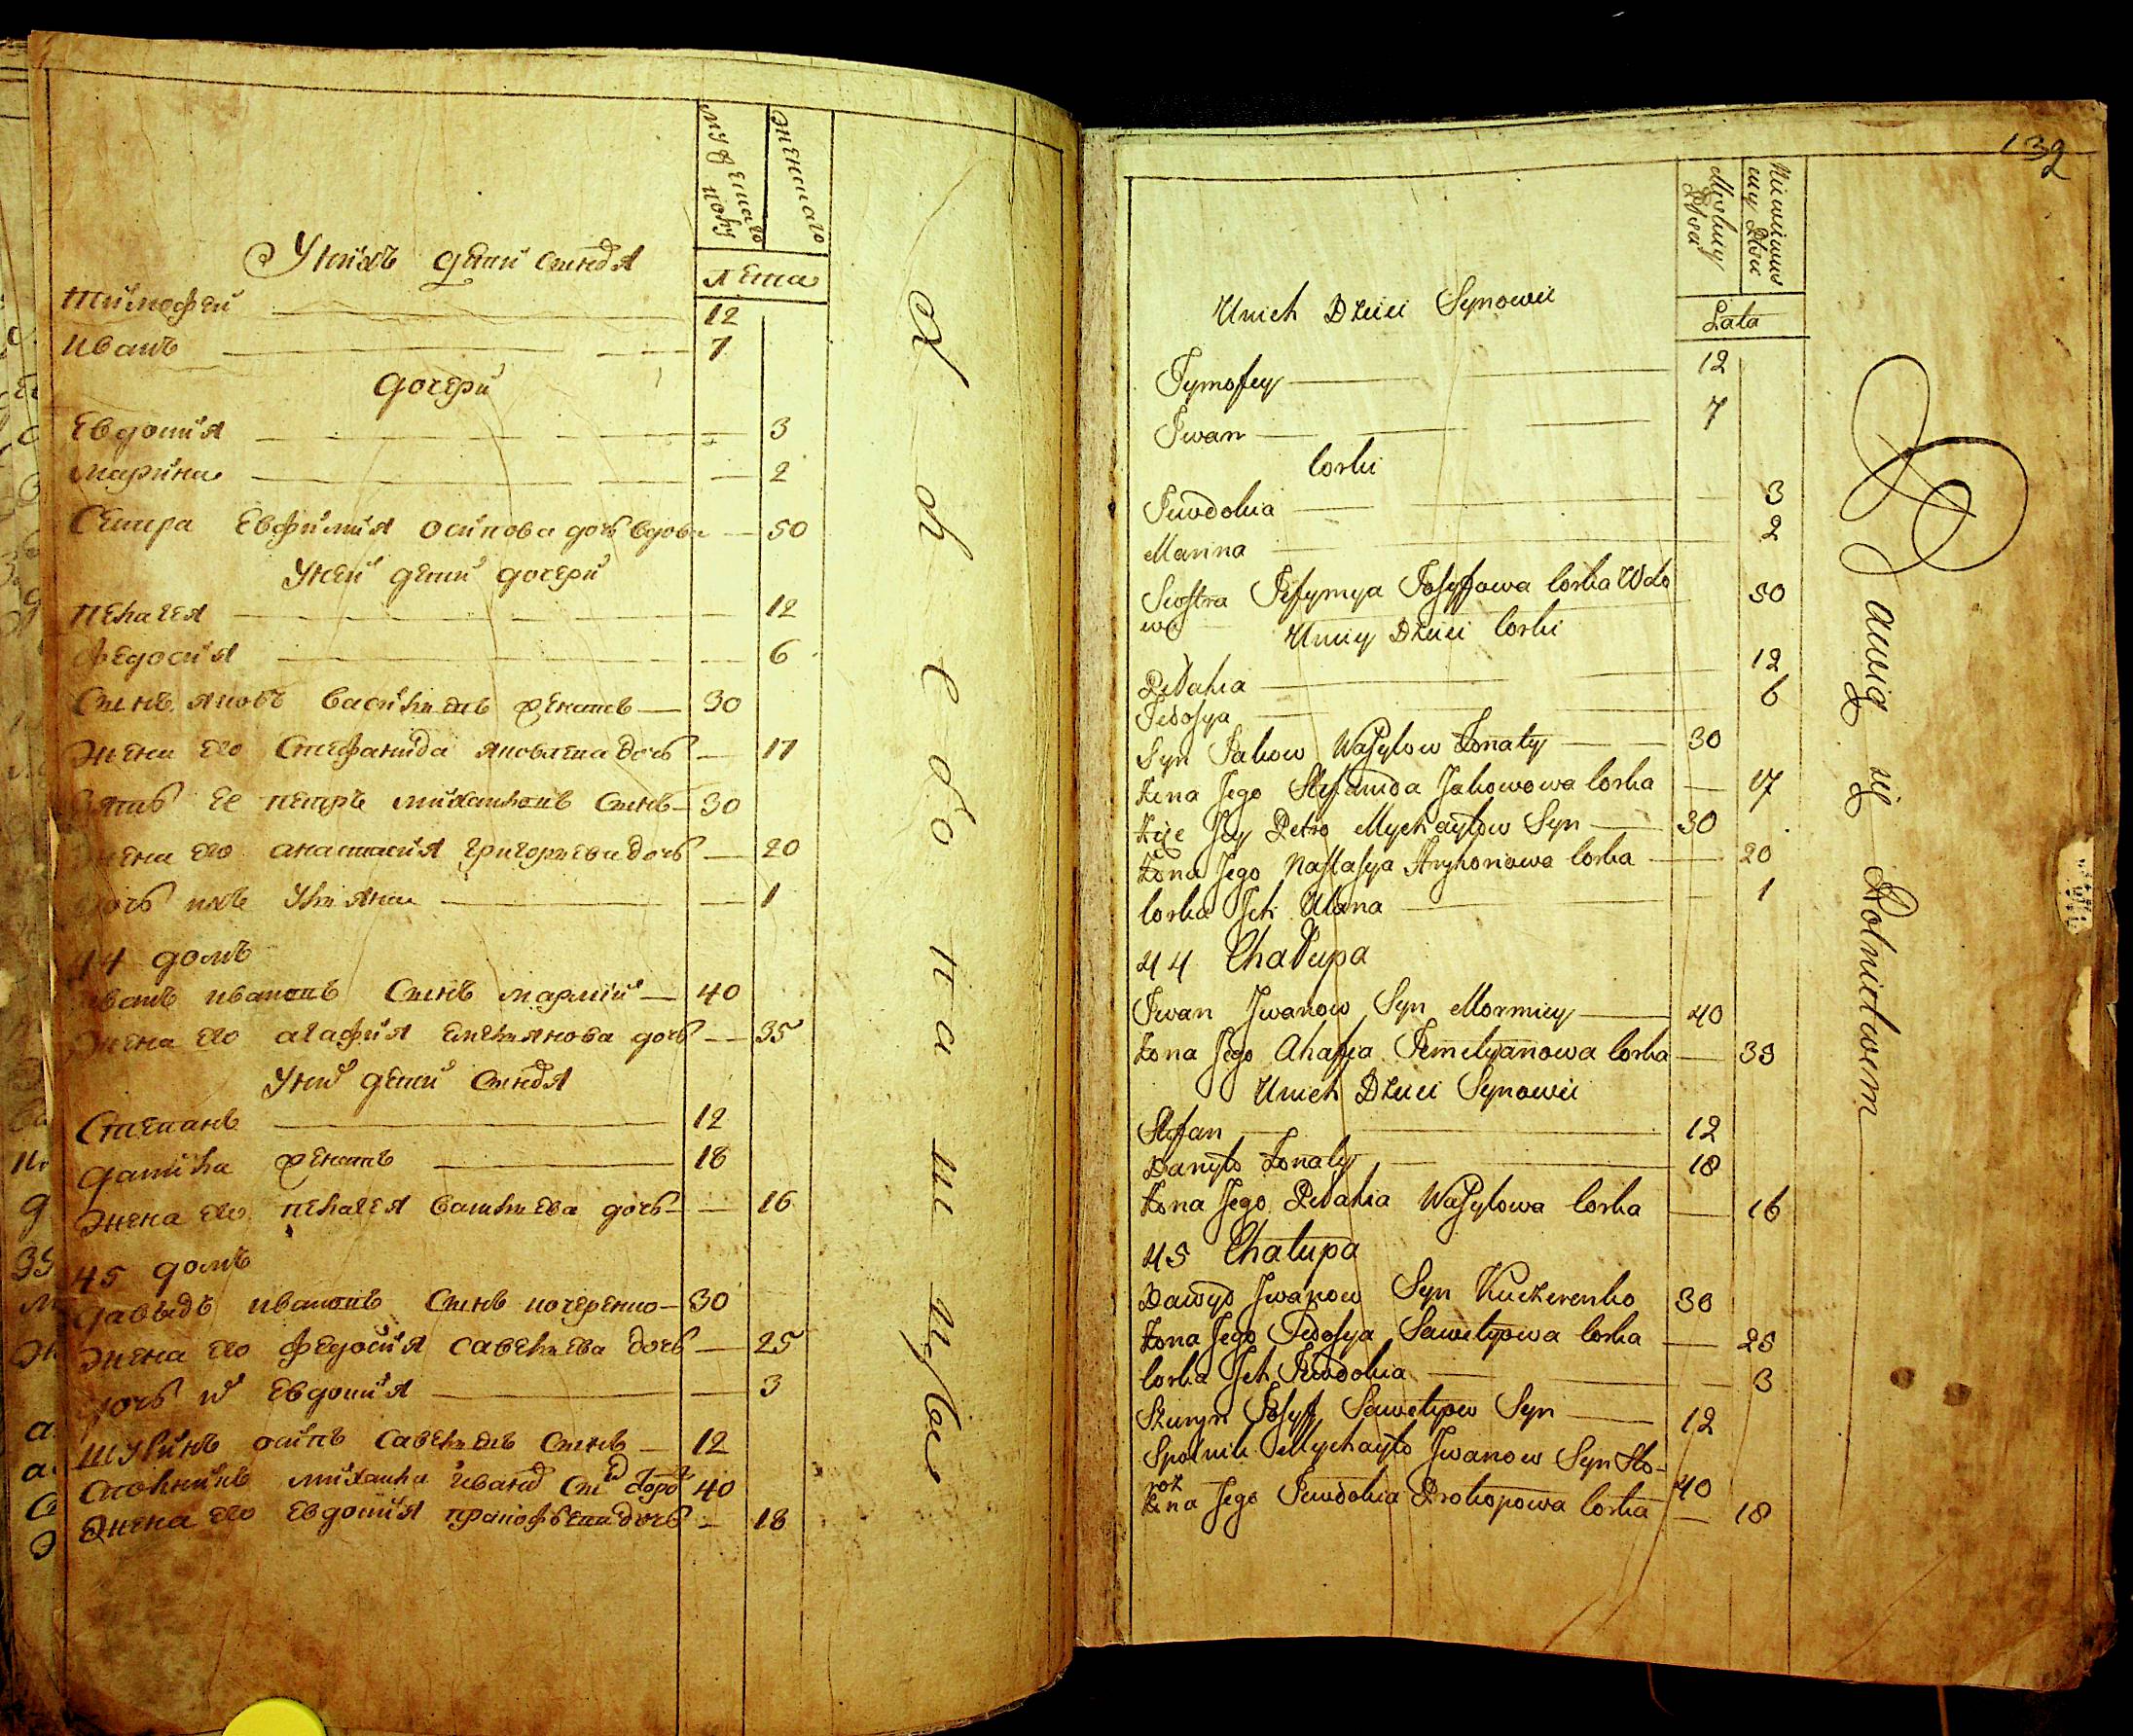 мужеска полу
женскаго
лета
У нихъ дети синовя
тимофей 12
иванъ 7
дочери
Евдокия 3
марина 2
Сестра Евфимия осипова дочь вдова 50
У ней дети дочери
пелагея 12
федосия 6
Синъ яковъ василиевъ женатъ 30
жена его Стефанида яковлева дочь 17
зять ее петръ михайловъ Синъ 30
жена его анастасия григориева дочь 20
дочь ихъ Улияна 1
44 домъ
иванъ ивановъ Синъ мармий 40
жена его агафия емелиянова дочь 35
У них дети синовя
Степанъ 12
данила женатъ 18
жена его пелагея василиева дочь 16
45 домъ
давыдъ ивановъ Синъ кочеренко 30
жена его федосия савелиева дочь 25
дочь их Евдокия 3
шуринъ осипъ савелиевъ Синъ 12
михаила иванов 40
жена его Евдокия прокофьева дочь 18
132
Męskiey Płci
Lata
Unich Dzieci Synowie
Tymofey 12
Iwan 7
Corki
Iewdokia 3
Marina 2
Siostra Iefymya Iosyffowa Corka Wdo 50
wa
Uniey Dzieci Corki
Pelahia 12
Fedosya 6
Syn Iakow Wasylow Żonaty 30
Żena Jego Stefanida Jakowowa Corka 17
Zięc Jey Petro Mychayłow Syn 30
Żona Jego Nastasya Hryhoriowa Corka 20
Corka Jch Ulana 1
44 Chałupa
Iwan Iwanow Syn Mormiey 40
Żona Jego Ahafia Iemelyanowa Corka 35
Unich Dzieci Synowie
Stefan 12
Danyło Żonaty 18
Żona Jego Pelahia Wasylowa Corka 16
45 Chałupa
Dawyd Iwanow Syn Kuczerenko 30
Żona Jego Fedosya Sawelyowa Corka 25
Corka Jch Iewdokia 3
Szuryn Iosyff Sawelyow Syn 12
Spolnik Mychayło Iwanow Syn Sto-
roz 40
Żona Jego Iewdokia Prokopowa Corka 18
Bawią się Rolnictwem